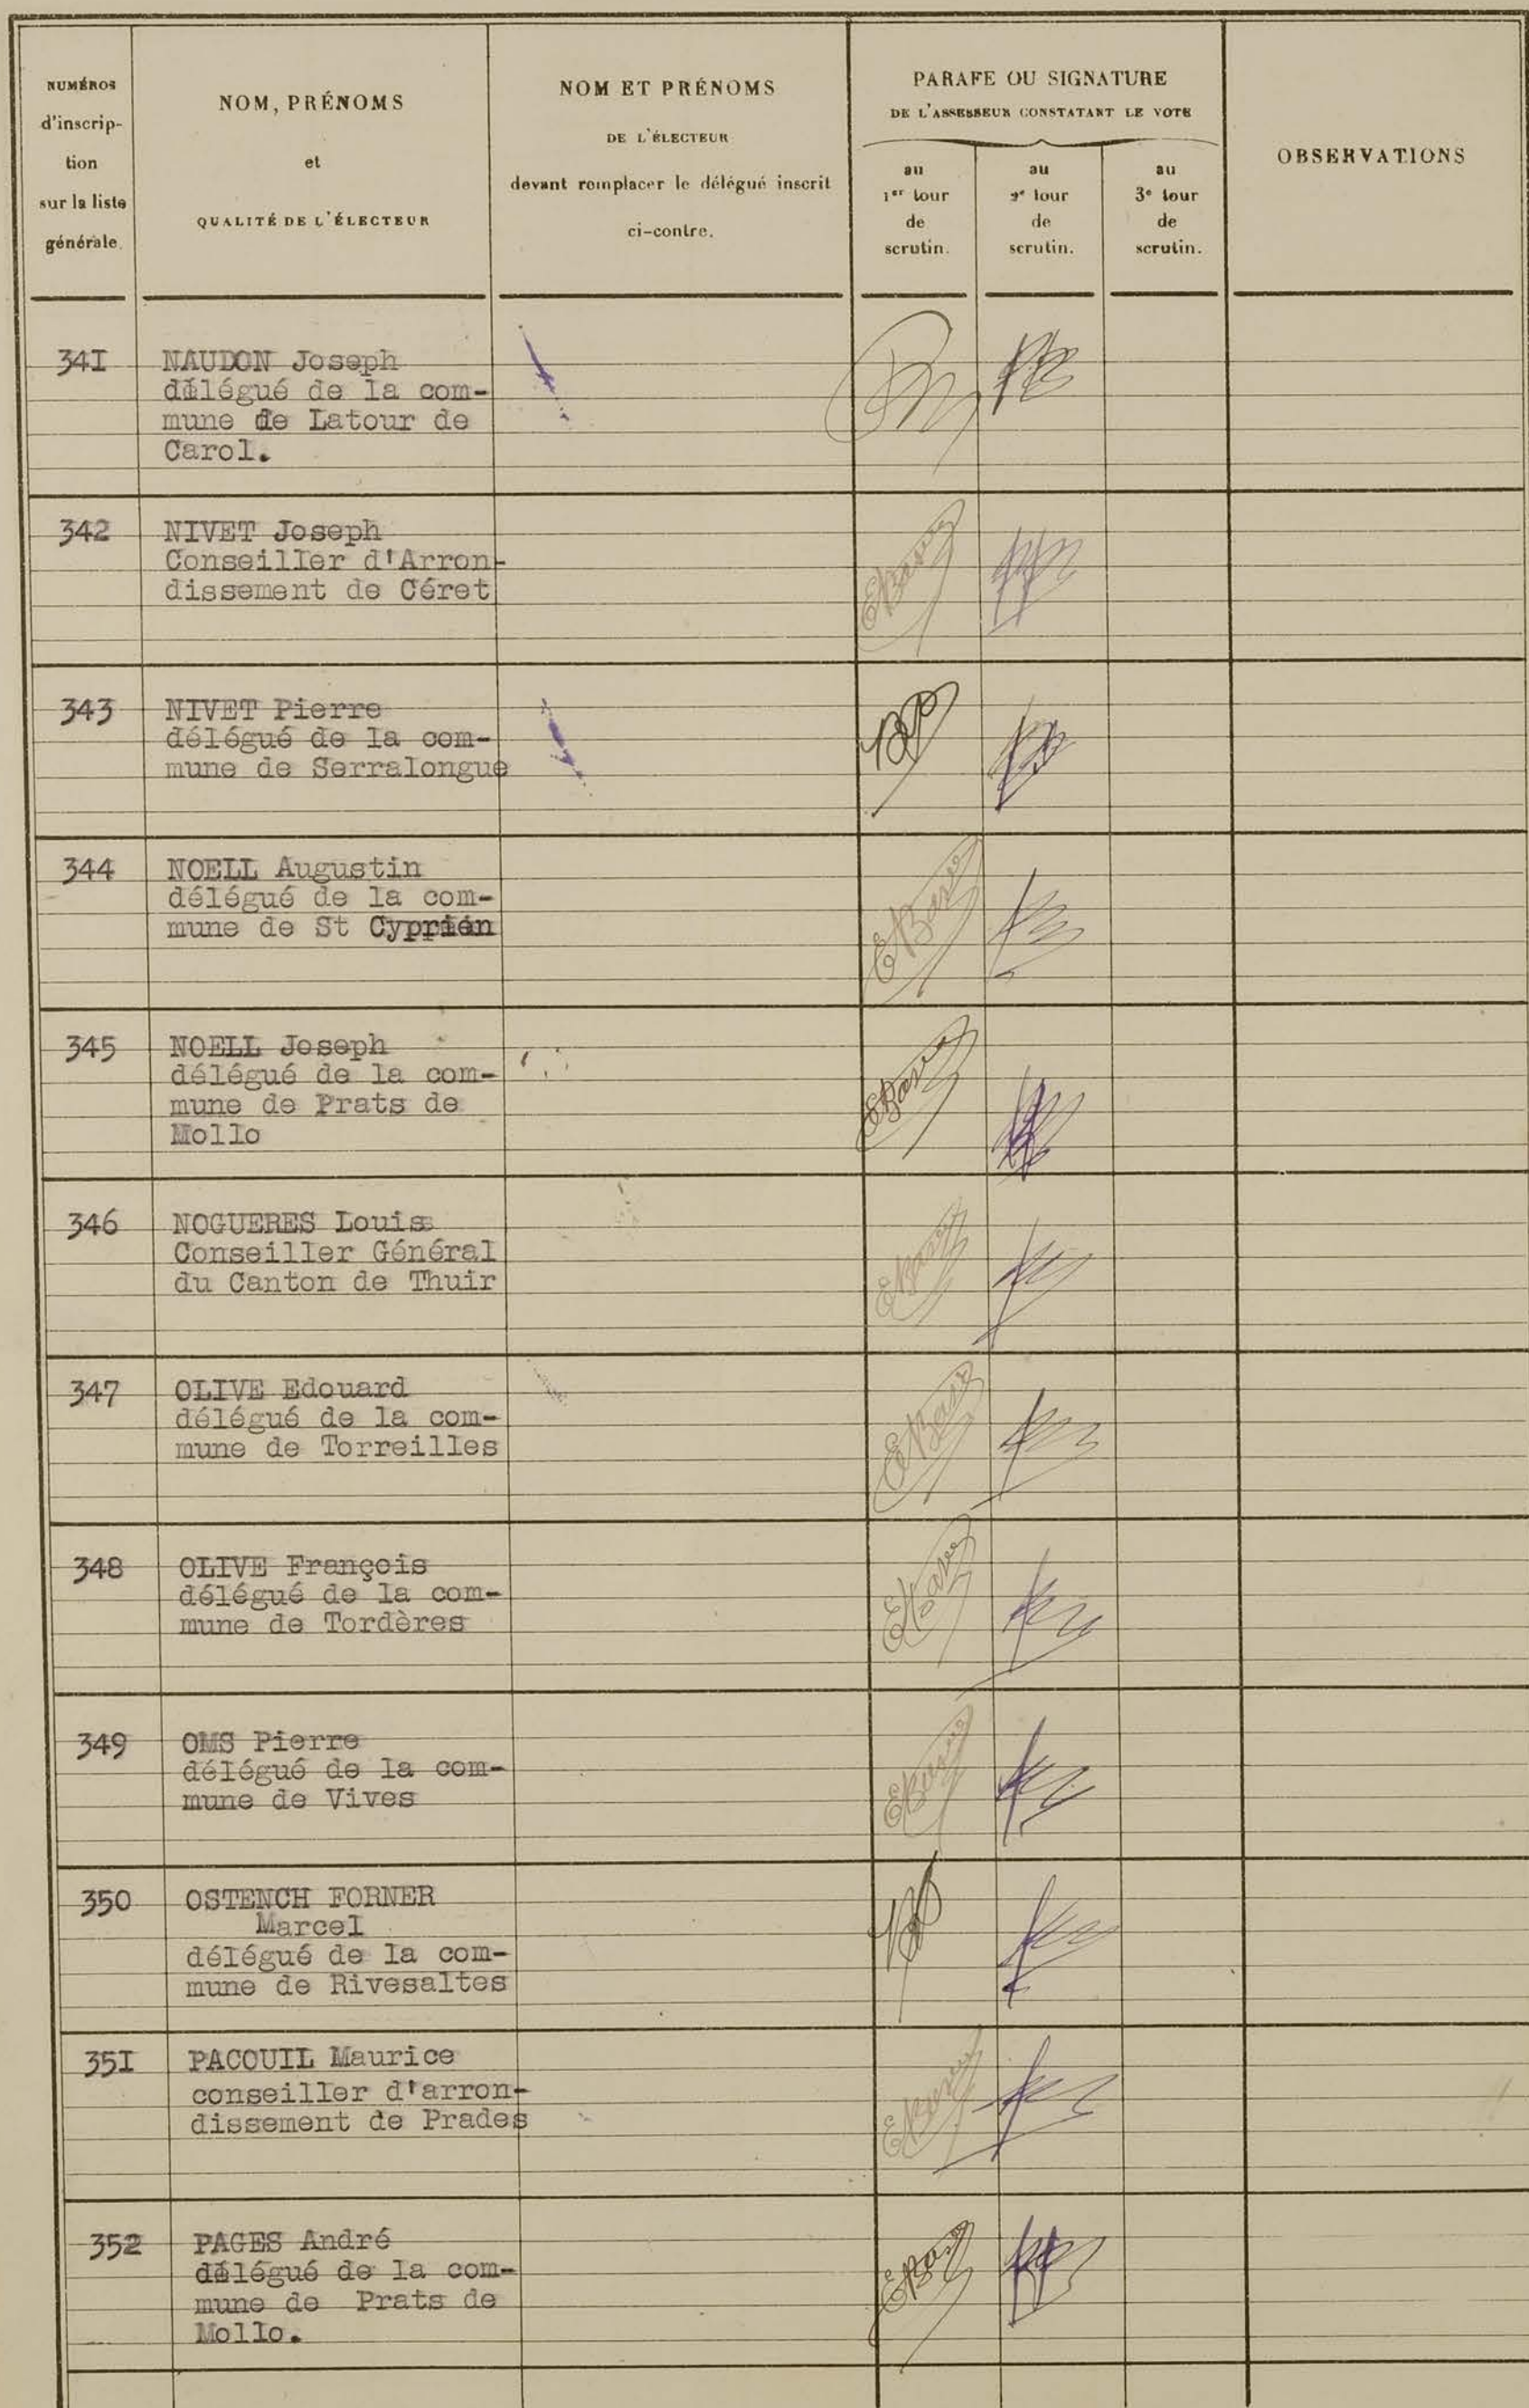 NUMÉROS
d'inscrip-
tion
sur la liste
générale.
NOM, PRÉNOMS
et
QUALITÉ DE L'ÉLECTEUR
NOM ET PRÉNOMS
DE L'ÉLECTEUR
devant remplacer le délégué inscrit
ci-contre.
PARAFE OU SIGNATURE
DE L'ASSESSEUR CONSTATANT LE VOTE
au
1er tour
de
scrutin.
au
2e tour
de
scrutin.
au
3e tour
de
scrutin.
OBSERVATIONS
34I NAUDON Joseph
délégué de la com-
mune de Latour de
Carol.
342 NIVET Joseph
Conseiller d'Arron-
dissement de Céret
343 NIVET Pierre
délégué de la com-
mune de Serralongue
344 NOELL Augustin
délégué de la com-
mune de St Cyprién
345 NOELL Joseph
délégué de la com-
mune de Prats de
Mollo
346 NOGUERES Louis
Conseiller Général
du Canton de Thuir
347 OLIVE Edouard
délégué de la com-
mune de Torreilles
348 OLIVE François
délégué de la com-
mune de Tordères
349 OMS Pierre
délégué de la com-
mune de Vives
350 OSTENCH FORNER
Marcel
délégué de la com-
mune de Rivesaltes
35I PACOUIL Maurice
conseiller d'arron-
dissement de Prades
352 PAGES André
délégué de la com-
mune de Prats de
Mollo.